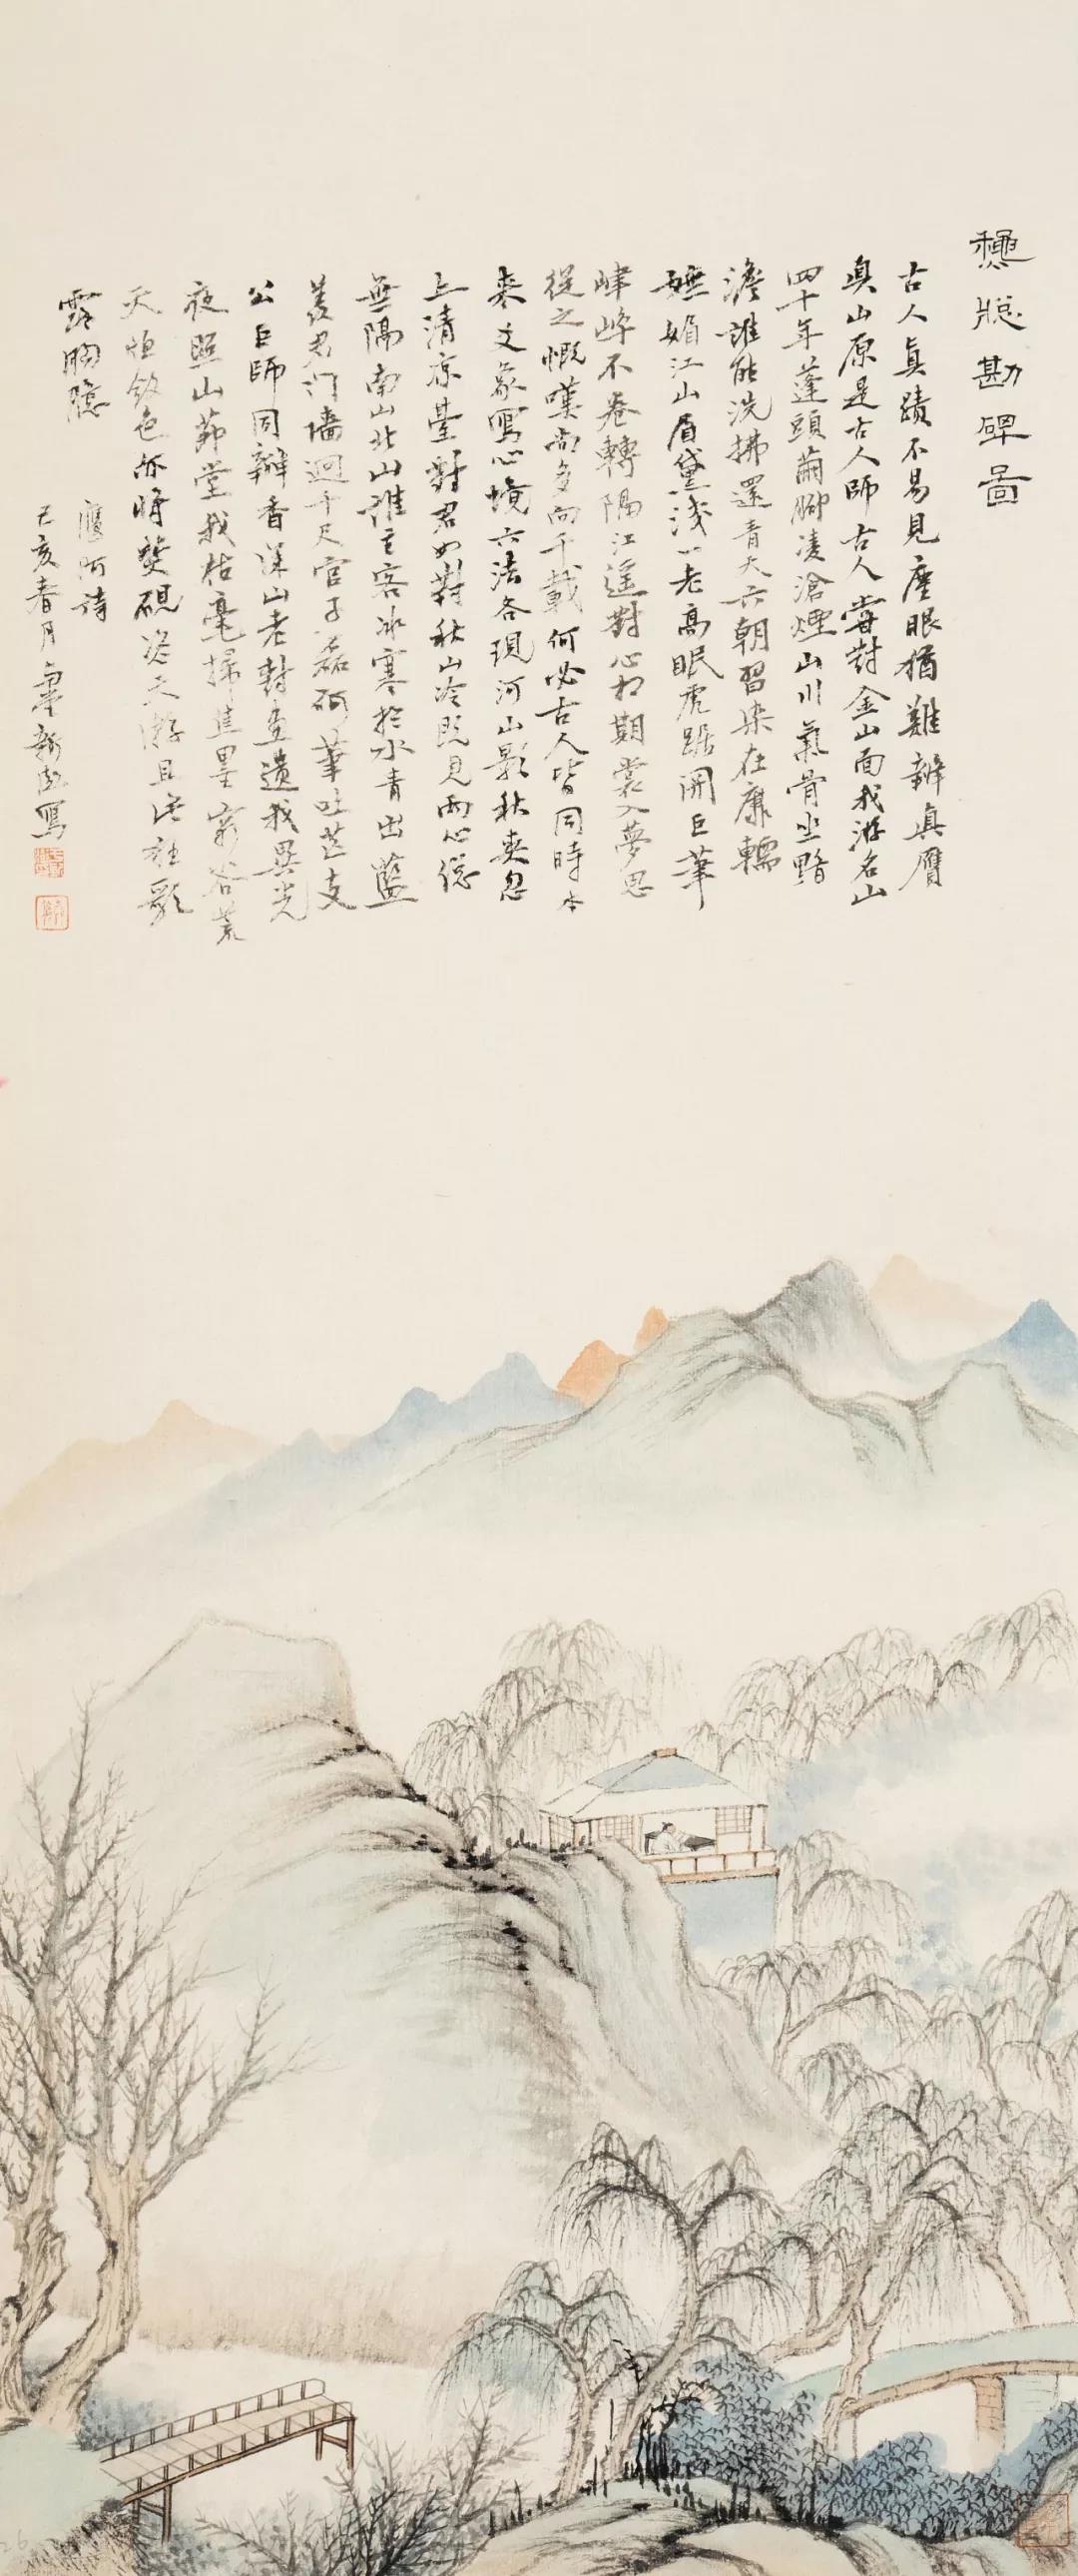 勘碑圖
古人真蹟不易見塵眼猶難辨真贋
真山原是古人師古人嘗對金山面我游名山
四十年蓬頭繭腳凌滄煙山川氣骨坐黯
澹誰能洗拂還青天六朝習染在廉
嫵媚江山眉黛淺一老高眠虎踞開巨筆
峰不卷轉隔江遙對心相期裳入夢思
從之慨嘆尚多向千載何必古人皆同時本
來文象寫心境六法各現河山影秋爽忽
上清涼臺對君如對秋山冷既見兩心
無隔南山北山誰主客冰寒於水青出藍
羨君門墻迥千尺官子磊砢筆吐芒支
公巨師同瓣香深山老對畫遺我異光
夜照山茆堂我枯毫掃焦墨窮谷荒
天慘斂色亦將焚硯流天游且狂歌
露胸臆
詩
己亥春月寫